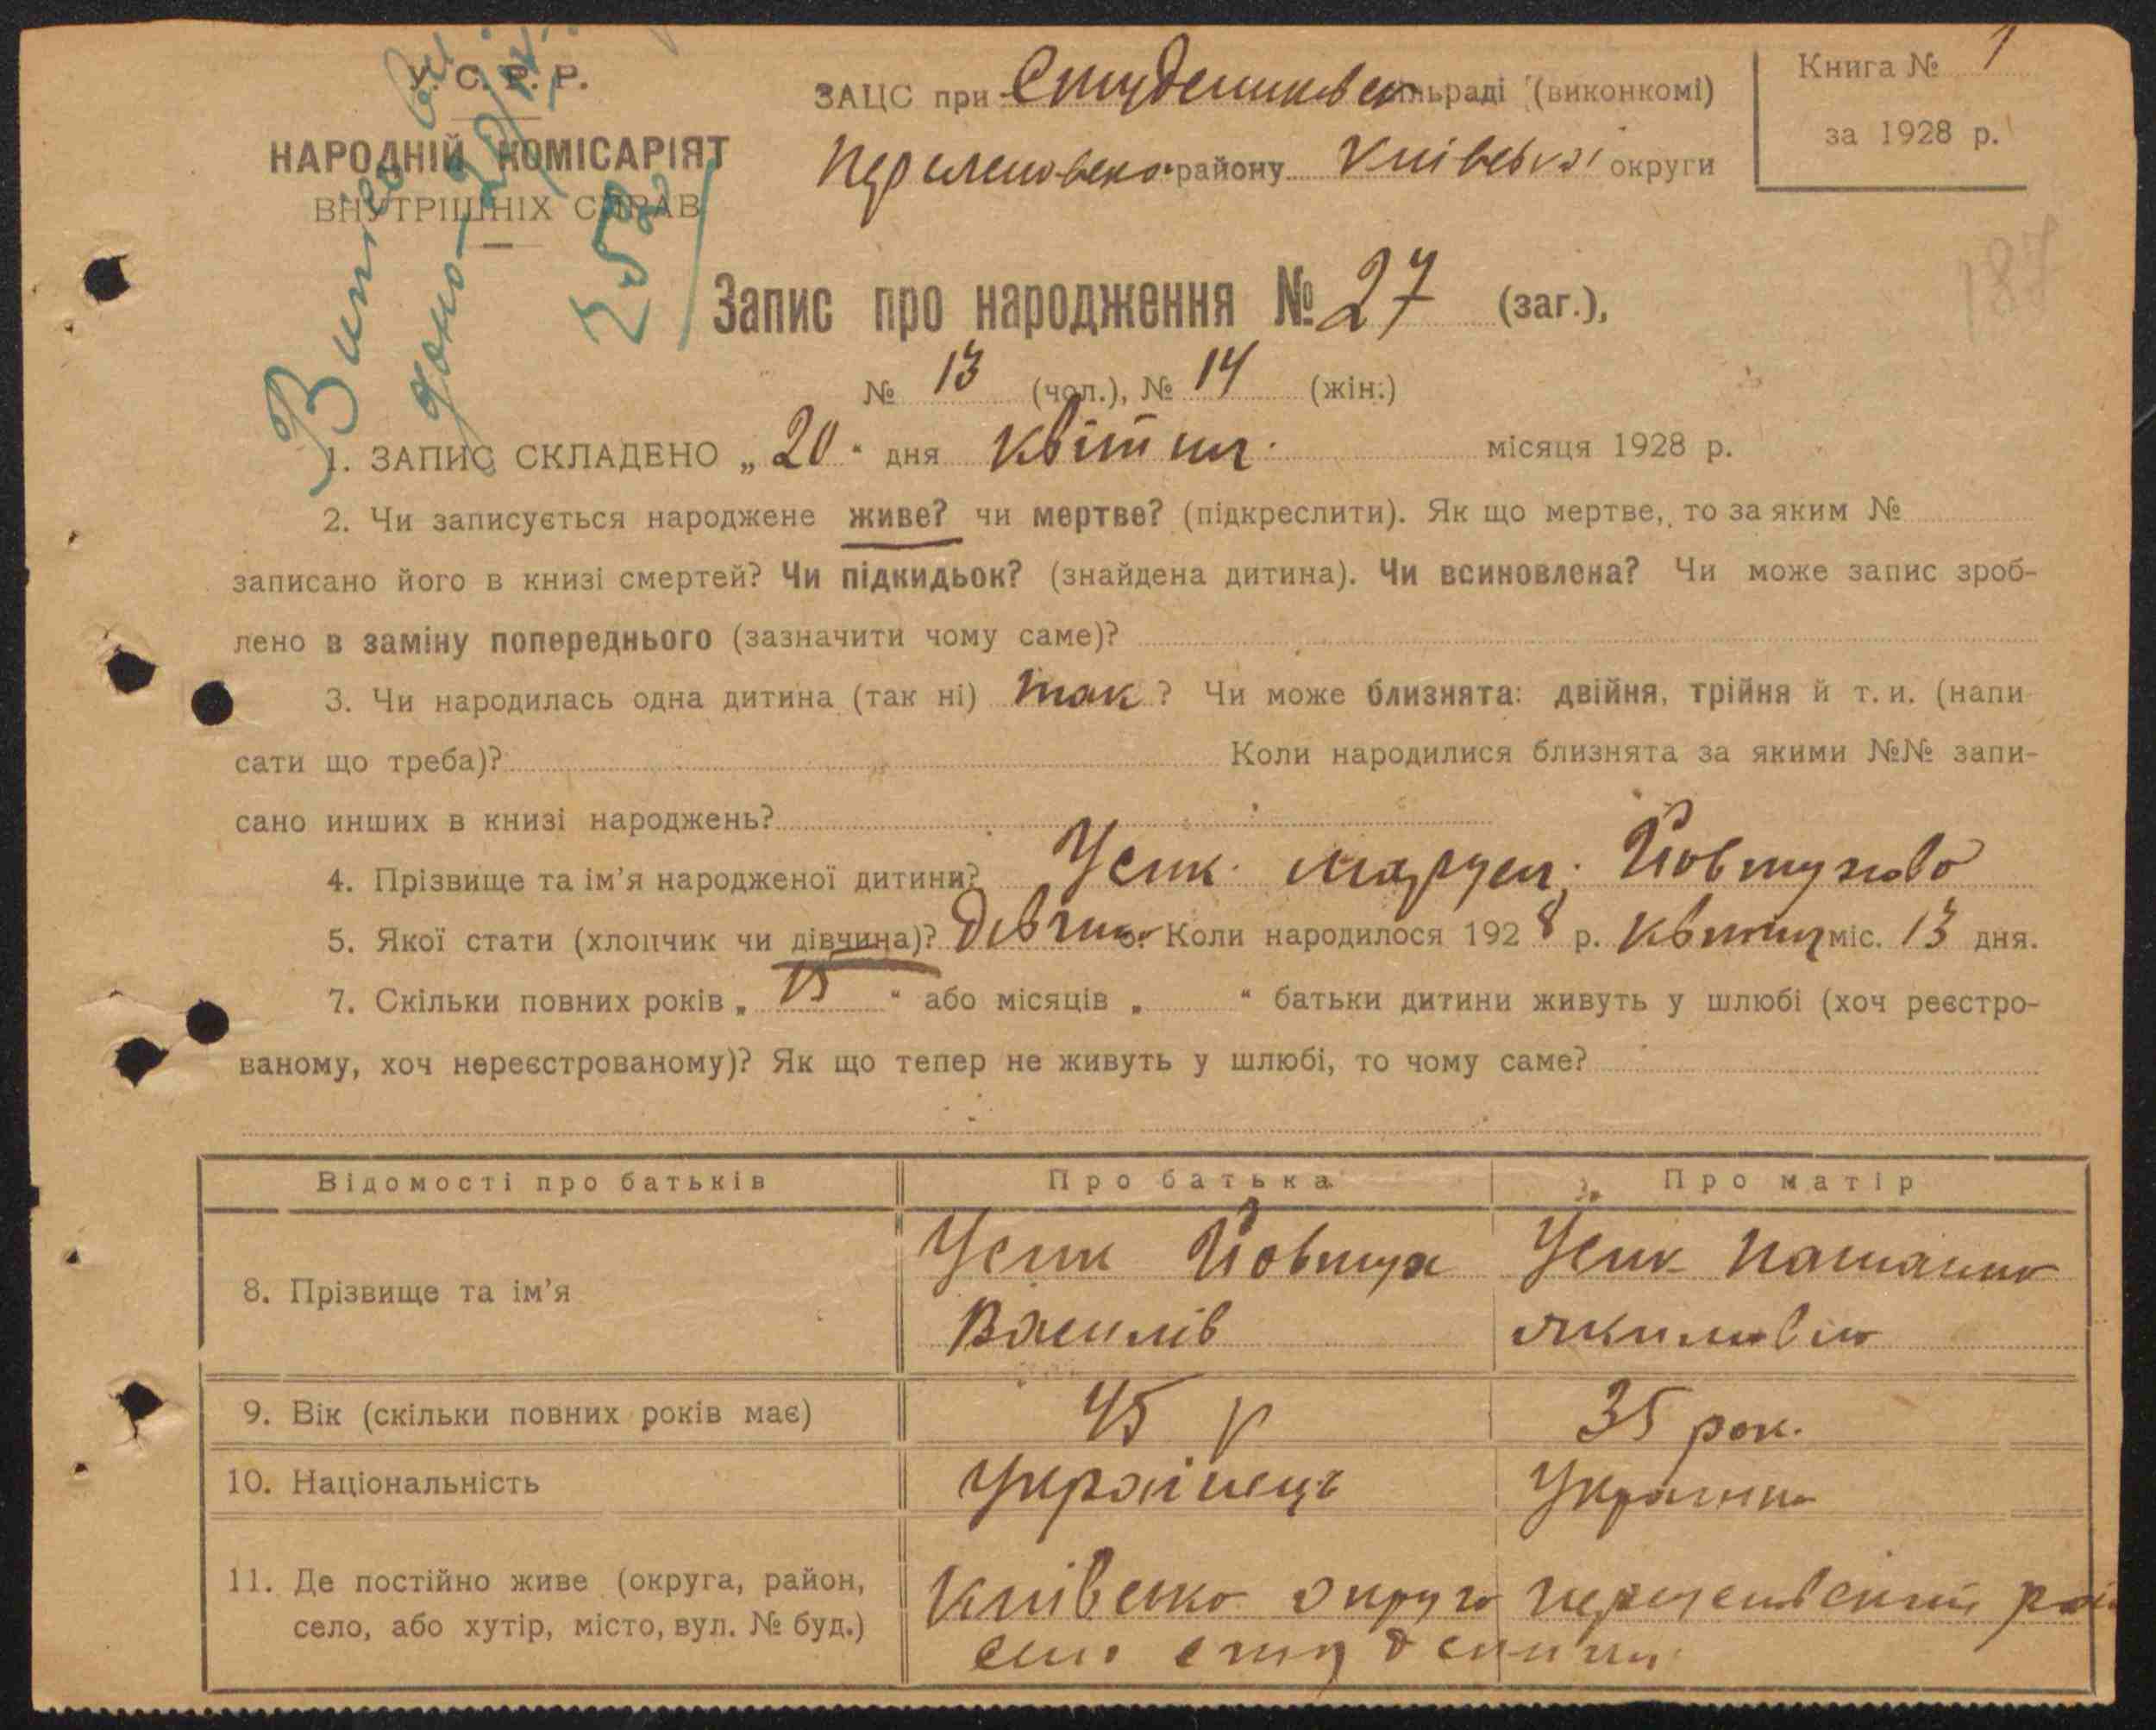 У. С. Р. Р.
НАРОДНІЙ КОМІСАРІЯТ
ВНУТРІШНІХ СПРАВ
ЗАЦС при Студениковск сільраді (виконкомі)
району Київської округи
Книга № 1
за 1928 р.
187
Запис про народження № 27 (заг.),
№ 13 (чол.), № 14 (жін.)
1. ЗАПИС СКЛАДЕНО „20“ дня квітня місяця 1928 р.
2. Чи записується народжене живе? чи мертве? (підкреслити). Як що мертве, то за яким №
записано його в книзі смертей? Чи підкидьок? (знайдена дитина). Чи всиновлена? Чи може запис зроб-
лено в заміну попереднього (зазначити чому саме)?
3. Чи народилась одна дитина (так ні) так ? Чи може близнята: двійня, трійня й т. и. (напи-
сати що треба)? Коли народилися близнята за якими №№ запи-
сано инших в книзі народжень?
4. Прізвище та ім'я народженої дитини? Усик Йовтухово
5. Якої стати (хлопчик чи дівчина)? Дівчина Коли народилося 1928 р. квітня міс. 13 дня.
7. Скільки повних років „ 15 “ або місяців „ “ батьки дитини живуть у шлюбі (хоч реєстро-
ваному, хоч нереєстрованому)? Як що тепер не живуть у шлюбі, то чому саме?
Відомості про батьків Про батька Про матір
8. Прізвище та ім'я Усик Йовтух Василів Усик
9. Вік (скільки повних років має) 45 р 35 рок.
10. Національність Українець Українка
11. Де постійно живе (округа, район, Київсько округо
село, або хутір, місто, вул. № буд.) село Студеники